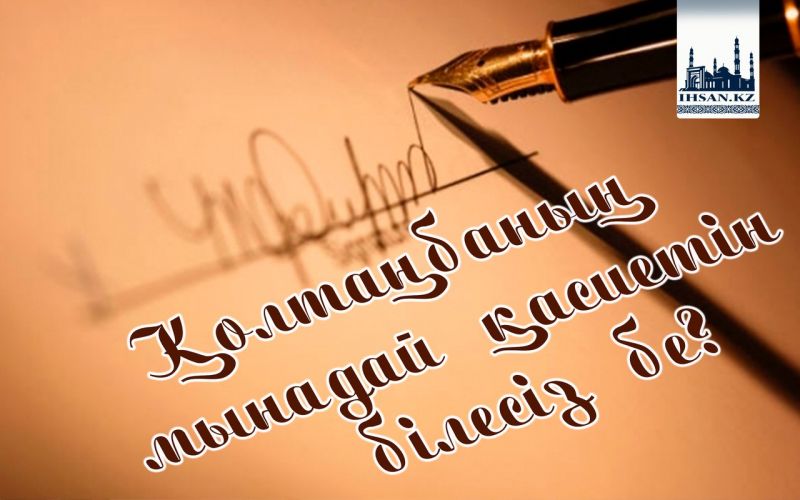 IHSAN.KZ
Қолтаңбаның
мынадай қасиетін
білесіз бе?